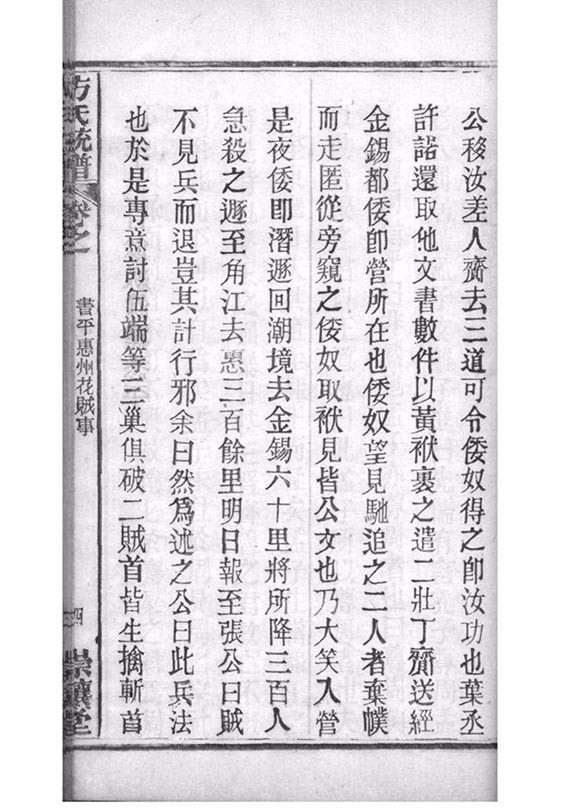 公移汝差人齎去三道可令倭奴得之卽汝功也葉丞
許諾還取他文書數件以黃袱裹之遣二壯丁齎送經
金錫都倭卽營所在也倭奴望見馳追之二人者棄幞
而走匿從旁窺之倭奴取袱見皆公文也乃大笑入營
是夜倭卽潛遯回潮境去金錫六十里將所降三百人
急殺之遯至角江去惠三百餘里明日報至張公曰賊
不見兵而退豈其計行邪余曰然爲述之公曰此兵法
也於是專意討伍端等三巢俱破二賊首皆生擒斬首
方氏統譜 卷之
書平惠州花賊事
四
堂